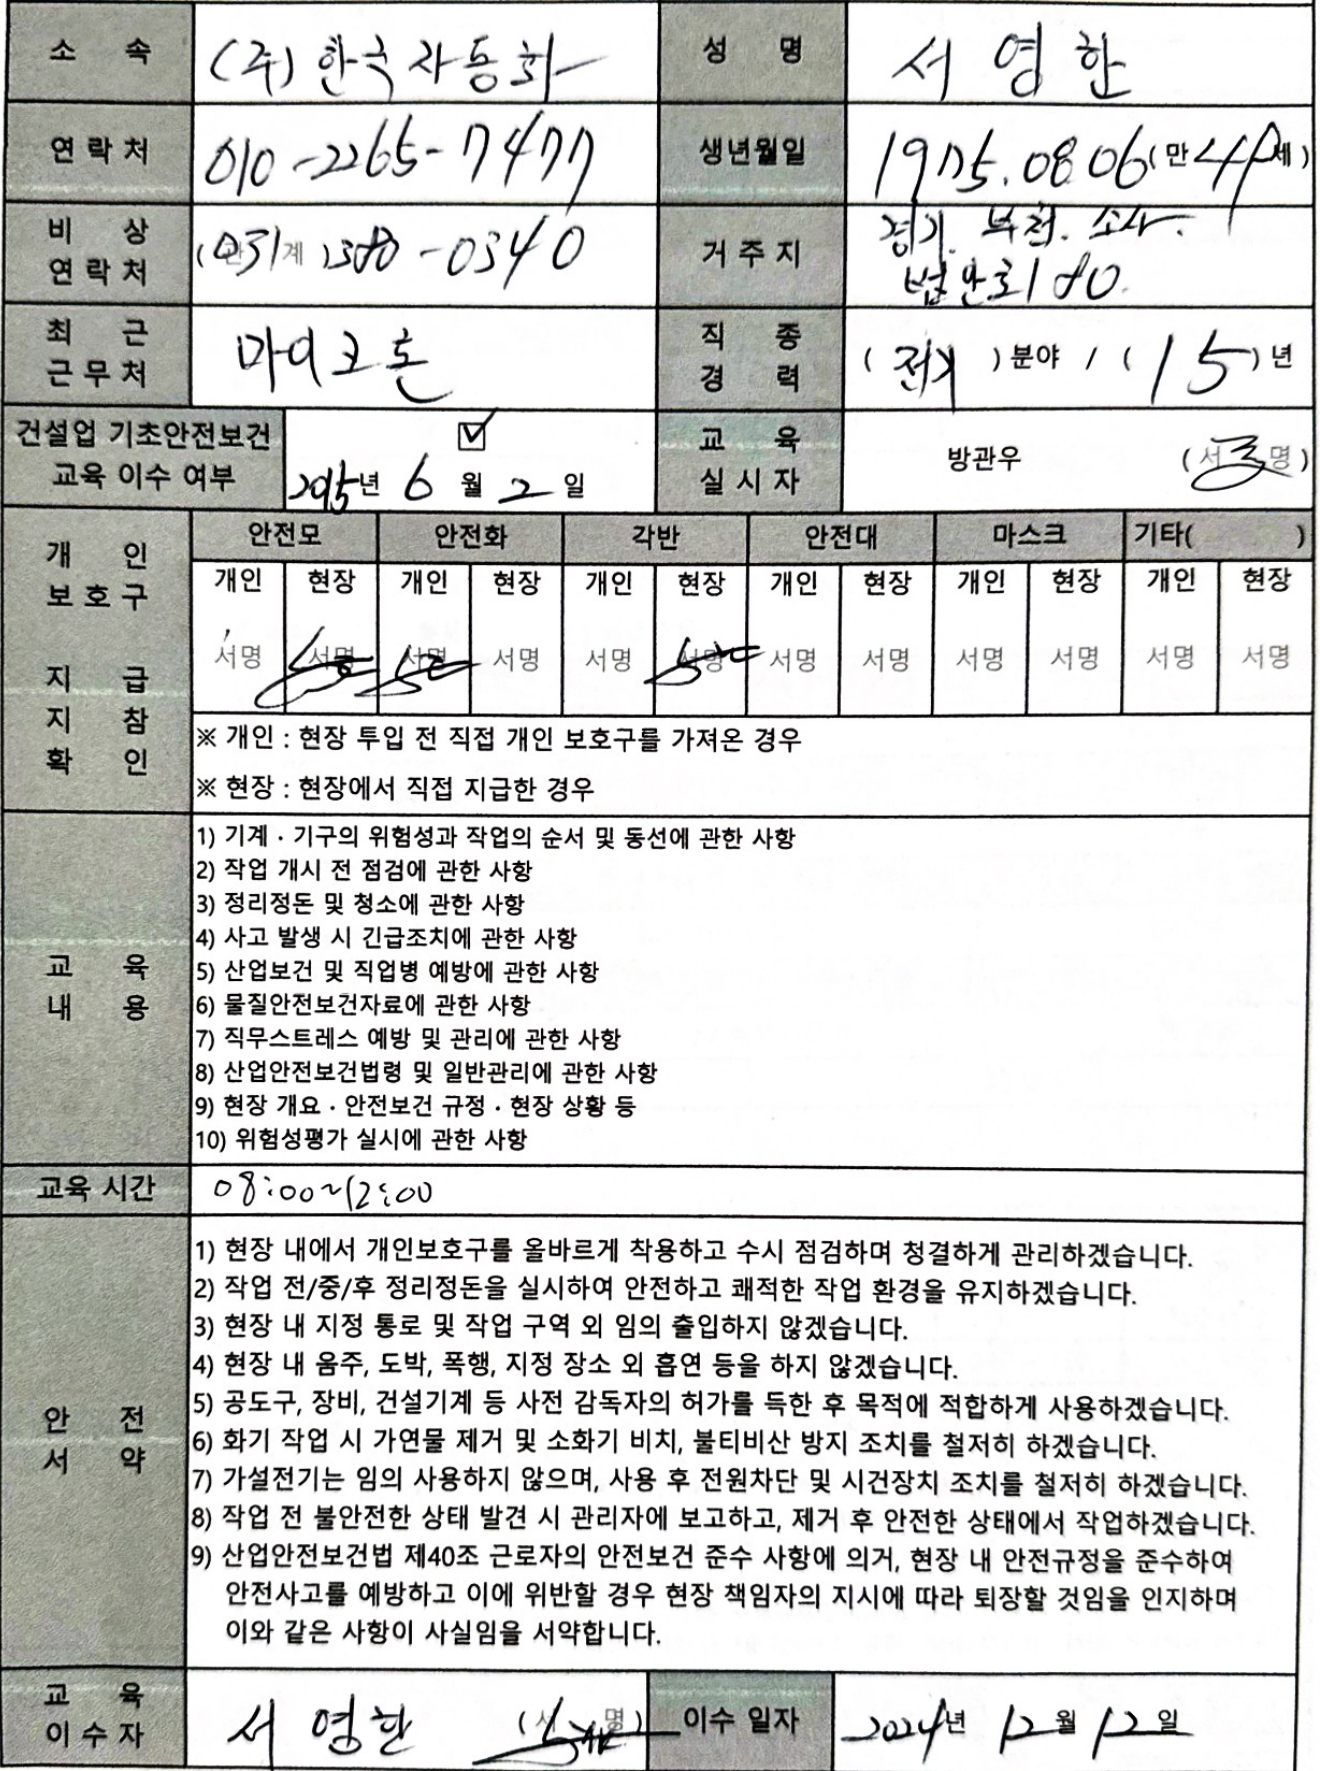 소 속 (주) 한국자동화 성 명 서 영 한
연 락 처 010-2265-7477 생년월일 1975.08.06 (만 세)
비 상 연 락 처 (관계) 031 380-0340 거 주 지 경기. 부천. 소사.
범안로 180.
최 근 근 무 처 마이크론 직 종 경 력 ( 전기 ) 분야 / ( 15 ) 년
건설업 기초안전보건
교육 이수 여부 ☑ 2015년 6 월 2 일
교 육 실 시 자 방관우 (서명)
개 인 보 호 구 지 급 지 참 확 인
안전모 안전화 각반 안전대 마스크 기타( )
개인 현장 개인 현장 개인 현장 개인 현장 개인 현장 개인 현장
서명 서명 서명 서명 서명 서명 서명 서명 서명 서명 서명 서명
※ 개인 : 현장 투입 전 직접 개인 보호구를 가져온 경우
※ 현장 : 현장에서 직접 지급한 경우
교 육 내 용
1) 기계 · 기구의 위험성과 작업의 순서 및 동선에 관한 사항
2) 작업 개시 전 점검에 관한 사항
3) 정리정돈 및 청소에 관한 사항
4) 사고 발생 시 긴급조치에 관한 사항
5) 산업보건 및 직업병 예방에 관한 사항
6) 물질안전보건자료에 관한 사항
7) 직무스트레스 예방 및 관리에 관한 사항
8) 산업안전보건법령 및 일반관리에 관한 사항
9) 현장 개요 · 안전보건 규정 · 현장 상황 등
10) 위험성평가 실시에 관한 사항
교육 시간 08:00~12:00
안 전 서 약
1) 현장 내에서 개인보호구를 올바르게 착용하고 수시 점검하며 청결하게 관리하겠습니다.
2) 작업 전/중/후 정리정돈을 실시하여 안전하고 쾌적한 작업 환경을 유지하겠습니다.
3) 현장 내 지정 통로 및 작업 구역 외 임의 출입하지 않겠습니다.
4) 현장 내 음주, 도박, 폭행, 지정 장소 외 흡연 등을 하지 않겠습니다.
5) 공도구, 장비, 건설기계 등 사전 감독자의 허가를 득한 후 목적에 적합하게 사용하겠습니다.
6) 화기 작업 시 가연물 제거 및 소화기 비치, 불티비산 방지 조치를 철저히 하겠습니다.
7) 가설전기는 임의 사용하지 않으며, 사용 후 전원차단 및 시건장치 조치를 철저히 하겠습니다.
8) 작업 전 불안전한 상태 발견 시 관리자에 보고하고, 제거 후 안전한 상태에서 작업하겠습니다.
9) 산업안전보건법 제40조 근로자의 안전보건 준수 사항에 의거, 현장 내 안전규정을 준수하여
안전사고를 예방하고 이에 위반할 경우 현장 책임자의 지시에 따라 퇴장할 것임을 인지하며
이와 같은 사항이 사실임을 서약합니다.
교 육 이 수 자 서 영 한 (서명) 이수 일자 2024년 12 월 12 일